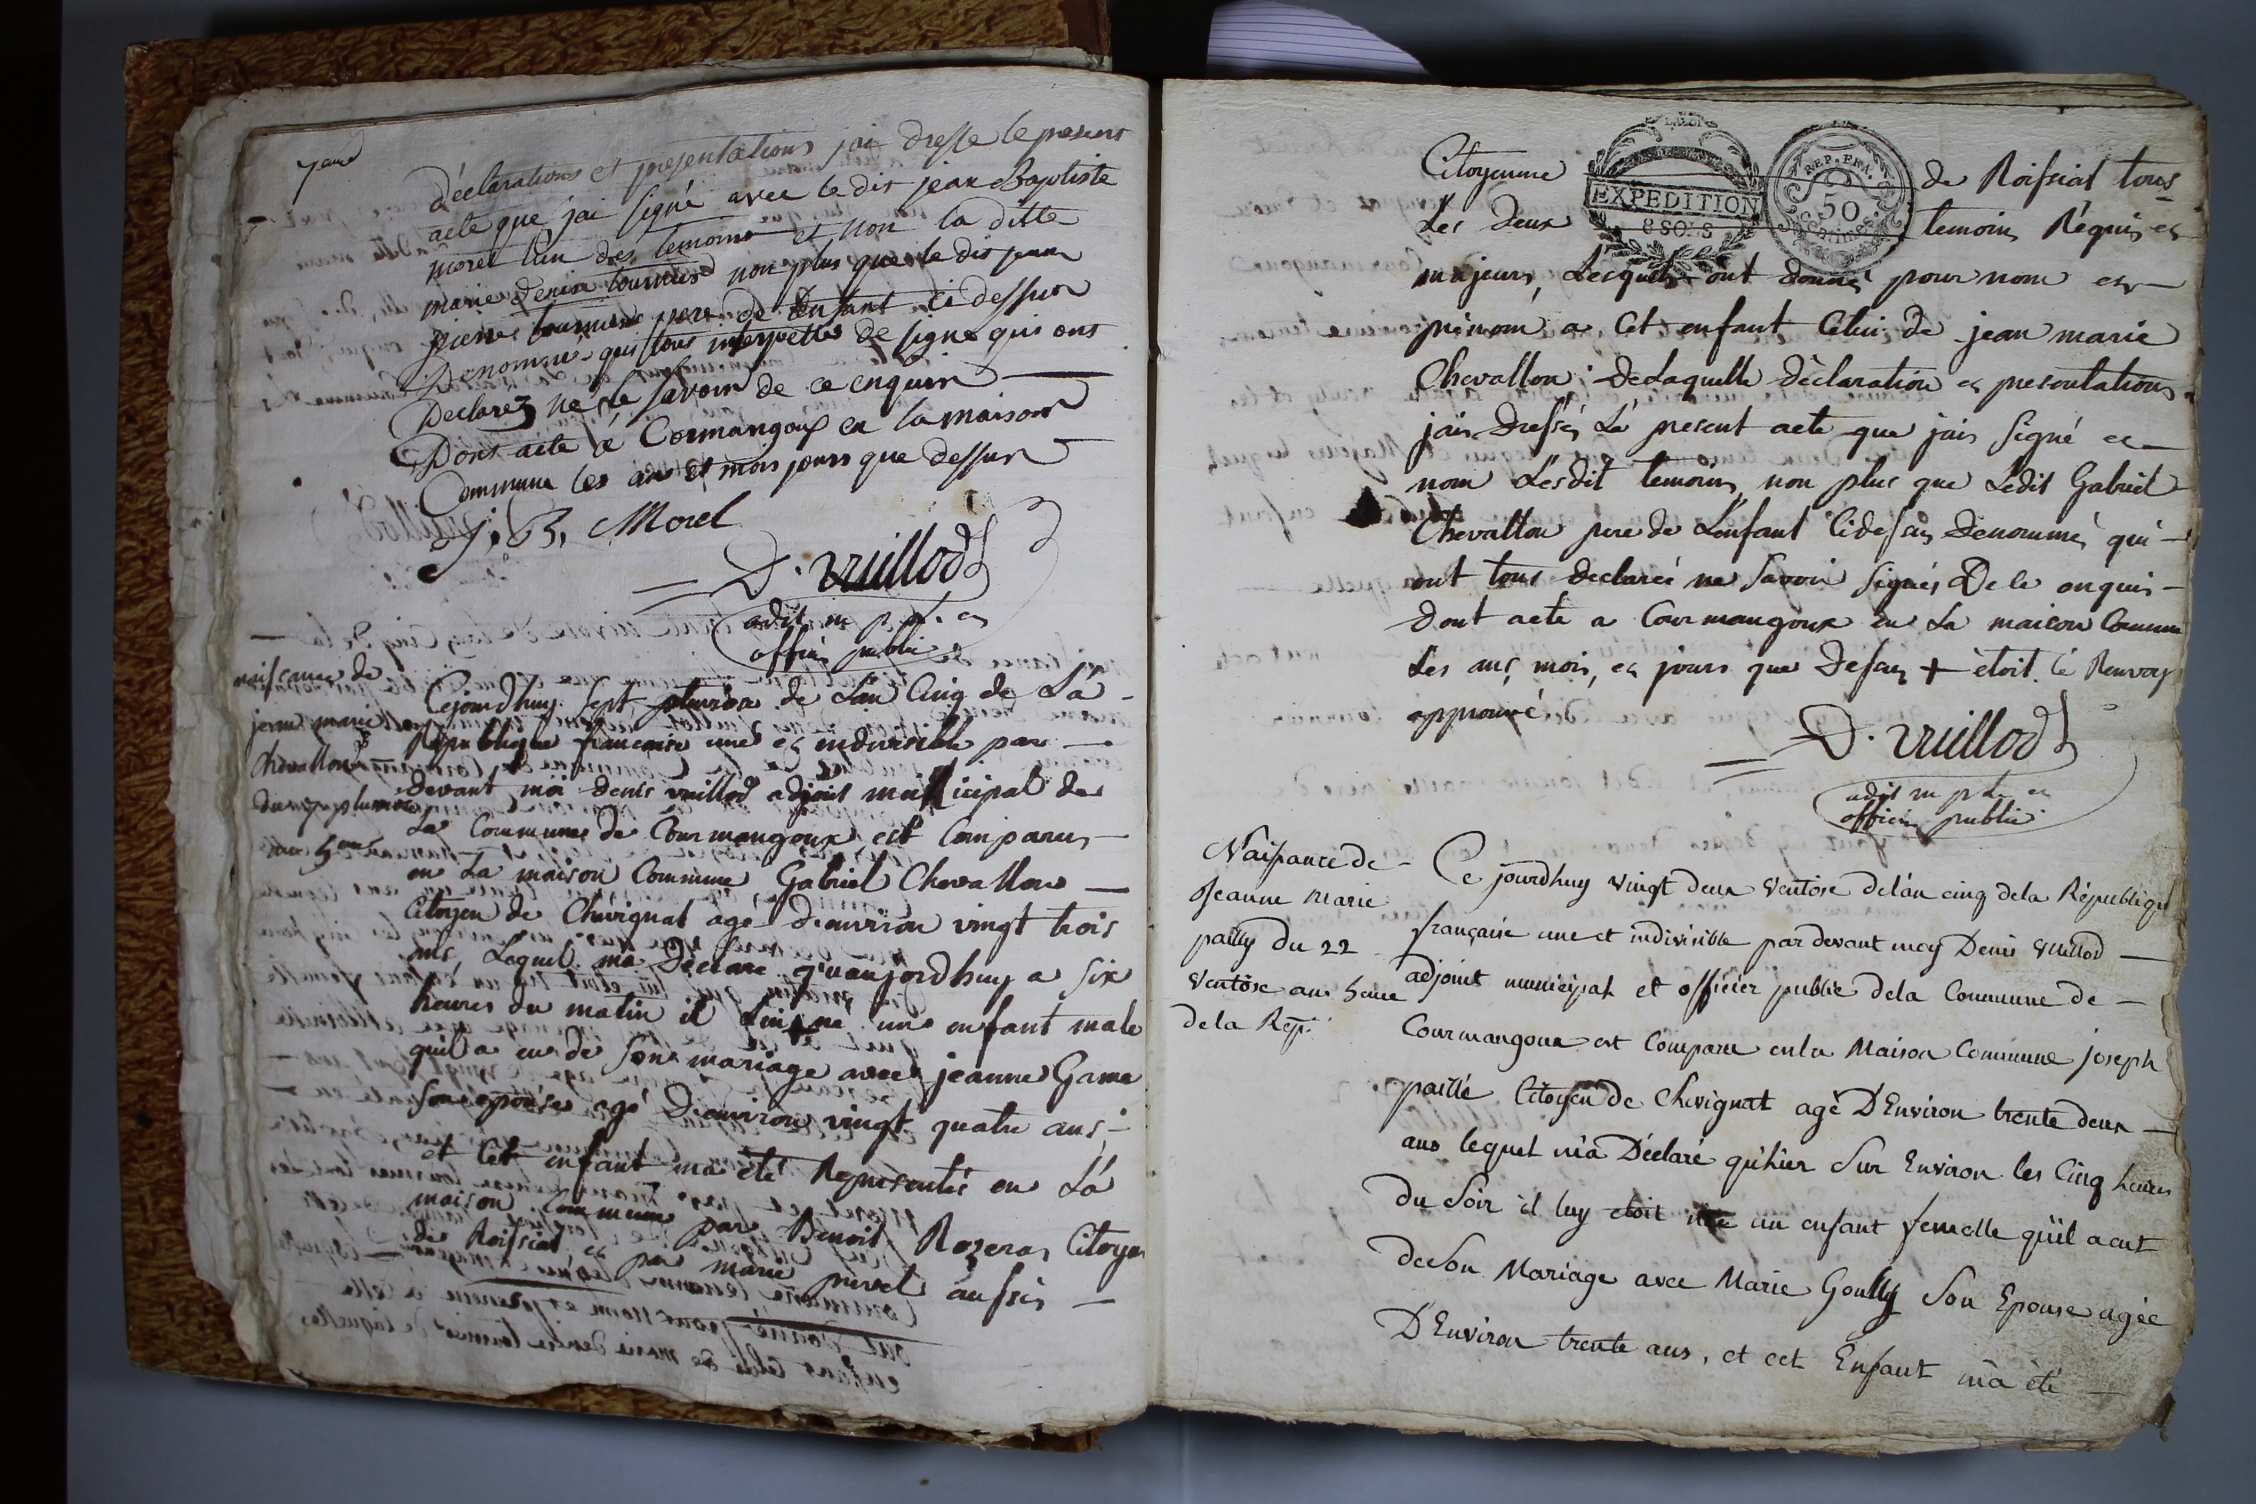 7eme
déclarations et presentations jai dressé le present
acte que jai signé avec le dit jean Baptiste
morel lun des temoins et non la ditte
marie denise tournier non plus que le dit jean
pierre tournier pere de Lenfant ci dessus
Denommé qui tous interpellé de signe qui ont
Declarez ne le savoir de ce enquis
Dont acte à Cormangoux en la maison
Commune les an et mois jours que dessus
j. B. Morel
D. vuillod
adjt m pal et
officier public
naissance de
jean marie
Chevallon
du 7 pluviose
an 5eme
Cejourdhuy sept pluviose de Lan Cinq de La
Republique francaise une et indivisible par
devant moi denis vuillod adjoint municipal de
La Commune de Courmangoux est Comparus
en La maison Commune Gabriel Chevallon
Citoyen de Chevignat agé denviron vingt trois
ans, Lequel ma Déclaré qu'aujordhuy a six
heures du matin il Lui + né un enfant male
quil a eu de son mariage avec jeanne Game
son epouse agé Denviron vingt quatre ans
et Cet enfant ma été Representé en La
maison Commune par Benoit Rozera Citoyen
de Roissiat et par marie purvel aussi
Citoyenne
EXPEDITION
8 SOLS
REP. FRA.
50
Centimes
de Roissiat tous
Les deux temoins Réquis et
majeurs, Lesquels ont donné pour nom et
prénom a Cet enfant Celui de jean marie
Chevallon : deLaquelle déclaration et presentations
jais Dressés Le present acte que jais signé et
nom Lesdit temoins, non plus que Ledit Gabriel
Chevallon pere de Lenfant Cidessus Denommés qui
ont tous declarés ne savoir signés De ce enquis
dont acte a Courmangoux en La maison Commune
Les ans, mois, et jours que Dessus + étoit. Le Renvoy
approuvé
D. vuillod
adjt m pal et
officier public
Naissance de
Jeanne Marie
pailly du 22
Ventôse an 5eme
de la Rep.
Ce jourdhuy vingt deux Ventose delàn cinq dela République
française une et indivisible par devant moy Denis Vuillod
adjoint municipal et officier public dela Commune de
Courmangoux est Comparu enla Maison Commune joseph
paillé Citoyen de Chevignat agé D'Environ trente deux
ans lequel m'a Déclaré qu'hier Sur Environ les Cinq heures
du Soir il luy etoit née un enfant femelle qu'il a eut
deson Mariage avec Marie Goully Son Epouse agée
D'Environ trente ans, et cet Enfant m'a été